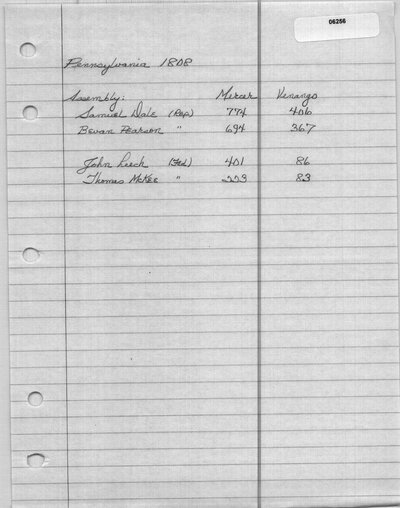 06256
Pennsylvania 1808
Assembly: Mercer Venango
Samuel Dale (Rep) 774 406
Bevan Pearson " 694 367
John Leech (Fed) 401 86
Thomas McKee " 333 83